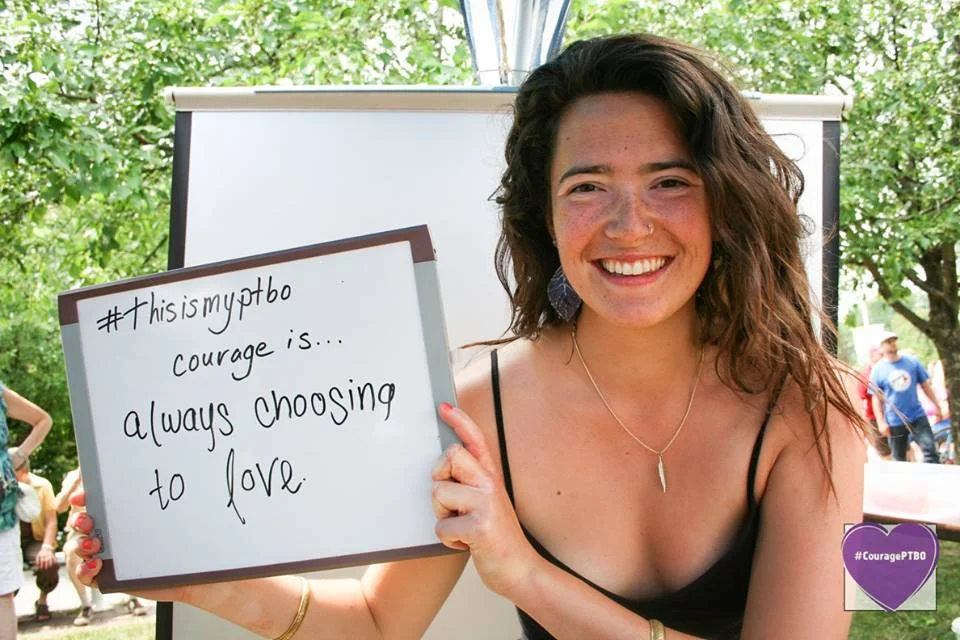 #thisismyptbo
courage is...
always choosing
to love.
#CouragePTBO